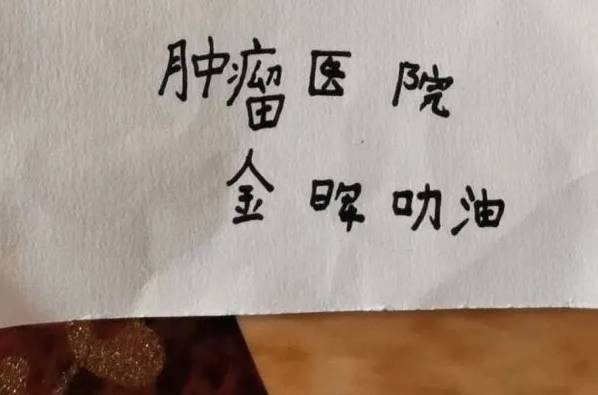 肿瘤医院
金晖叻油